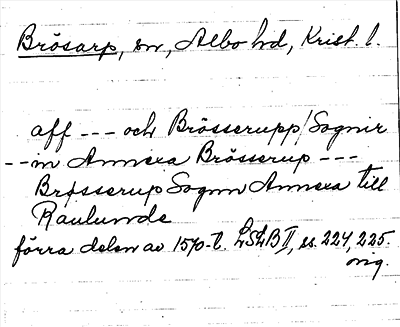 Brösarp, sn, Albo hd, Krist. l.
aff --- och Brösserupp/Sognir
--m Annexa Brösserup ---
Brösserup Sognn Annexa till
Raulunde
förra delen av 1570-t. LSLB II, ss. 224, 225.
orig.